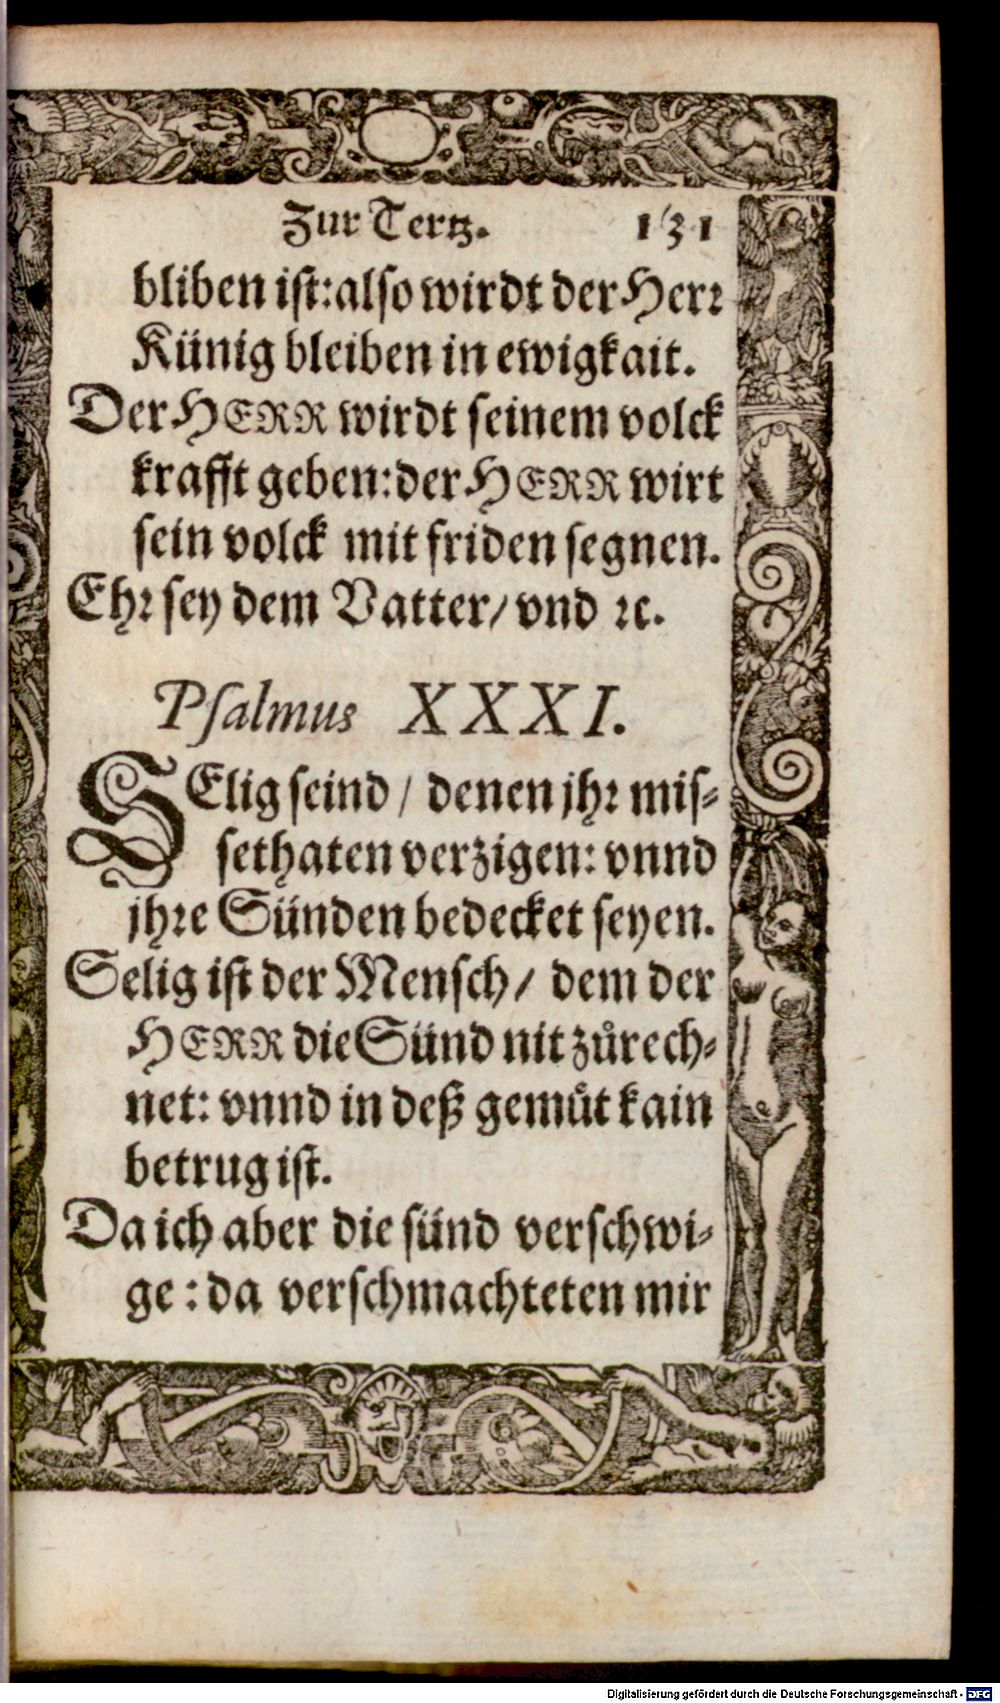 Zur Tertz. 131
bliben ist: also wirdt der Herr
Künig bleiben in ewigkait.
Der HERR wirdt seinem volck
krafft geben: der HERR wirt
sein volck mit friden segnen.
Ehr sey dem Vatter/ vnd ꝛc.
Psalmus XXXI.
SElig seind / denen jhr mis-
sethaten verzigen: vnnd
jhre Sünden bedecket seyen.
Selig ist der Mensch/ dem der
HERR die Sünd nit zůrech-
net: vnnd in deß gemůt kain
betrug ist.
Da ich aber die sünd verschwi-
ge: da verschmachteten mir
Digitalisierung gefördert durch die Deutsche Forschungsgemeinschaft - DFG